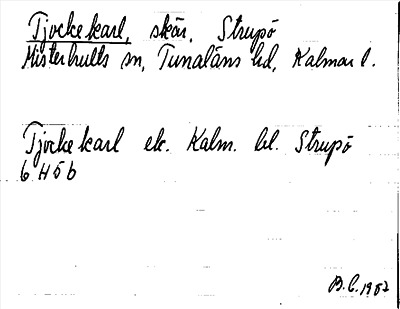 Tjockekarl, skär, Strupö
Misterhults sn, Tunaläns hd, Kalmar l.
Tjockekarl ek. Kalm. bl. Strupö
6 H 5 b
B.C. 1952